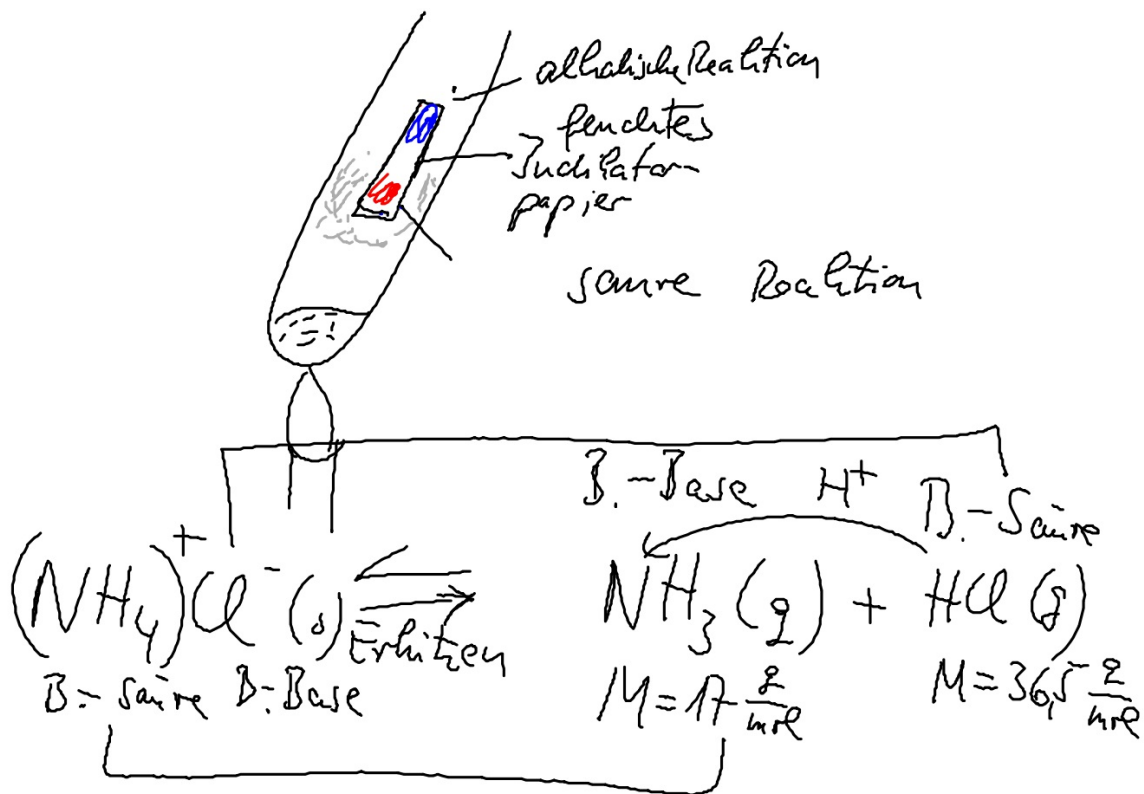 alkalische Reaktion
feuchtes
Indikator-
papier
saure Reaktion
B.-Base H⁺ B.-Säure
(NH₄)⁺Cl⁻(s) ⇌ NH₃(g) + HCl(g)
Erhitzen
B.-Säure B.-Base
M = 17 g/mol M = 36,5 g/mol